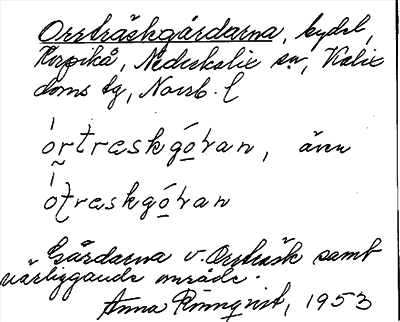 Orrträskgårdarna, bydel,
Korpikå, Nederkalix sn, Kalix
doms tg, Norrb. l
órtraskgó̱ran, även
ótraskgó̱ran
Gårdarna v. Orrträsk samt
närliggande område.
Anna Rönnqvist, 1953